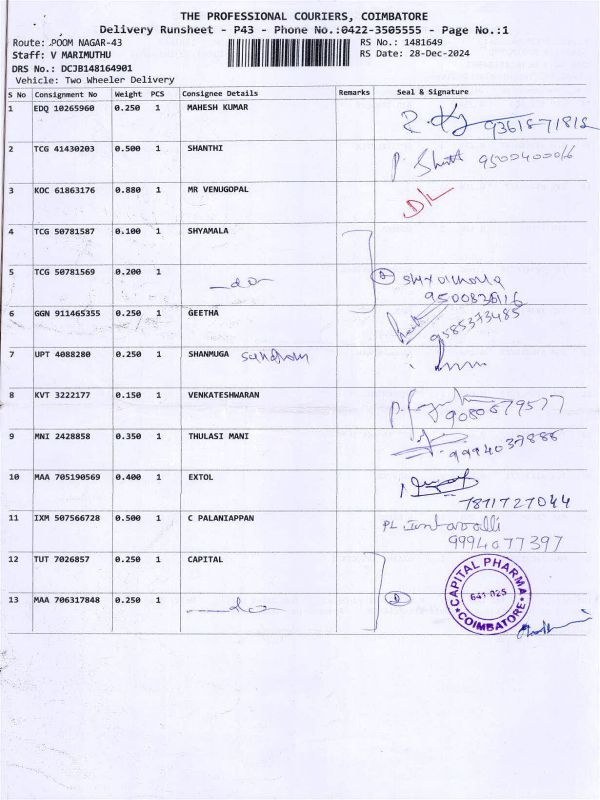 THE PROFESSIONAL COURIERS, COIMBATORE
Delivery Runsheet - P43 - Phone No.:0422-3505555 - Page No.:1
Route: POOM NAGAR-43
RS No.: 1481649
Staff: V MARIMUTHU
RS Date: 28-Dec-2024
DRS No.: DCJB148164901
Vehicle: Two Wheeler Delivery
S No Consignment No Weight PCS Consignee Details Remarks Seal & Signature
1 EDQ 10265960 0.250 1 MAHESH KUMAR
9361871812
2 TCG 41430203 0.500 1 SHANTHI
9500400066
3 KOC 61863176 0.880 1 MR VENUGOPAL D/L
4 TCG 50781587 0.100 1 SHYAMALA
5 TCG 50781569 0.200 1 do 2
9500838116
6 GGN 911465355 0.250 1 GEETHA
9585373485
7 UPT 4088280 0.250 1 SHANMUGA sundram
8 KVT 3222177 0.150 1 VENKATESHWARAN
9080679577
9 MNI 2428858 0.350 1 THULASI MANI
9994037886
10 MAA 705190569 0.400 1 EXTOL
7871727044
11 IXM 507566728 0.500 1 C PALANIAPPAN
9994077397
12 TUT 7026857 0.250 1 CAPITAL
13 MAA 706317848 0.250 1 do
CAPITAL PHARMA
641 025
COIMBATORE